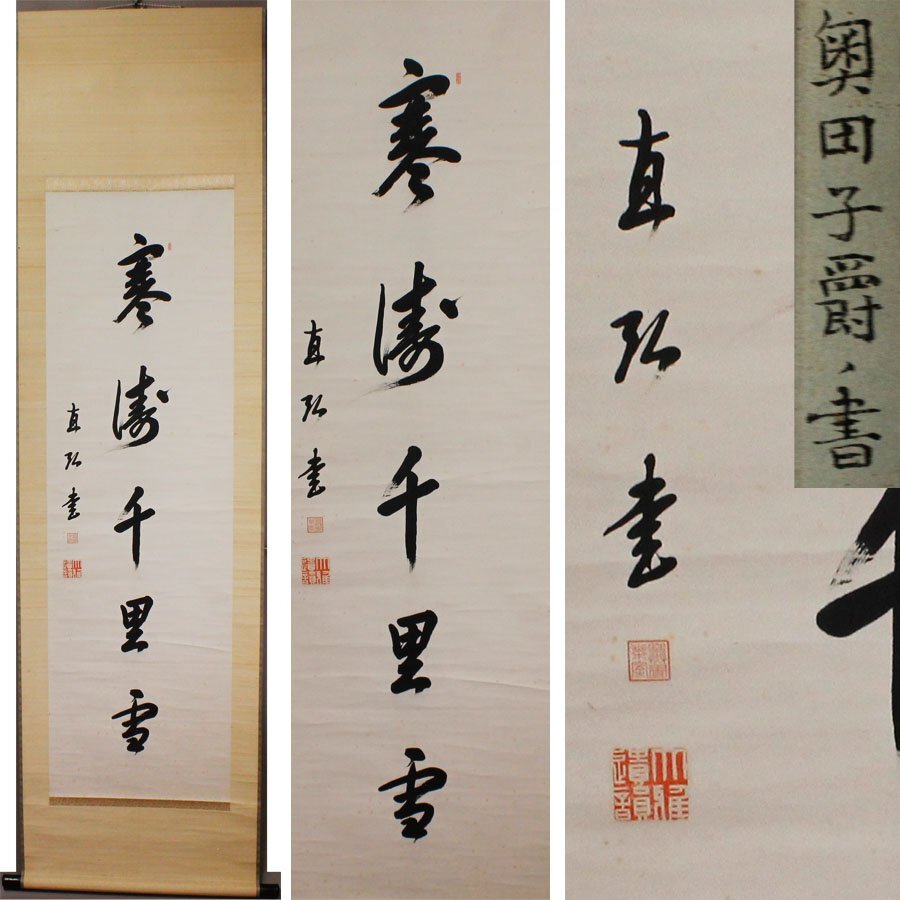 寒濤千里雪
直弘書
寒濤千里雪
直弘書
奥田子爵ノ書
直弘書